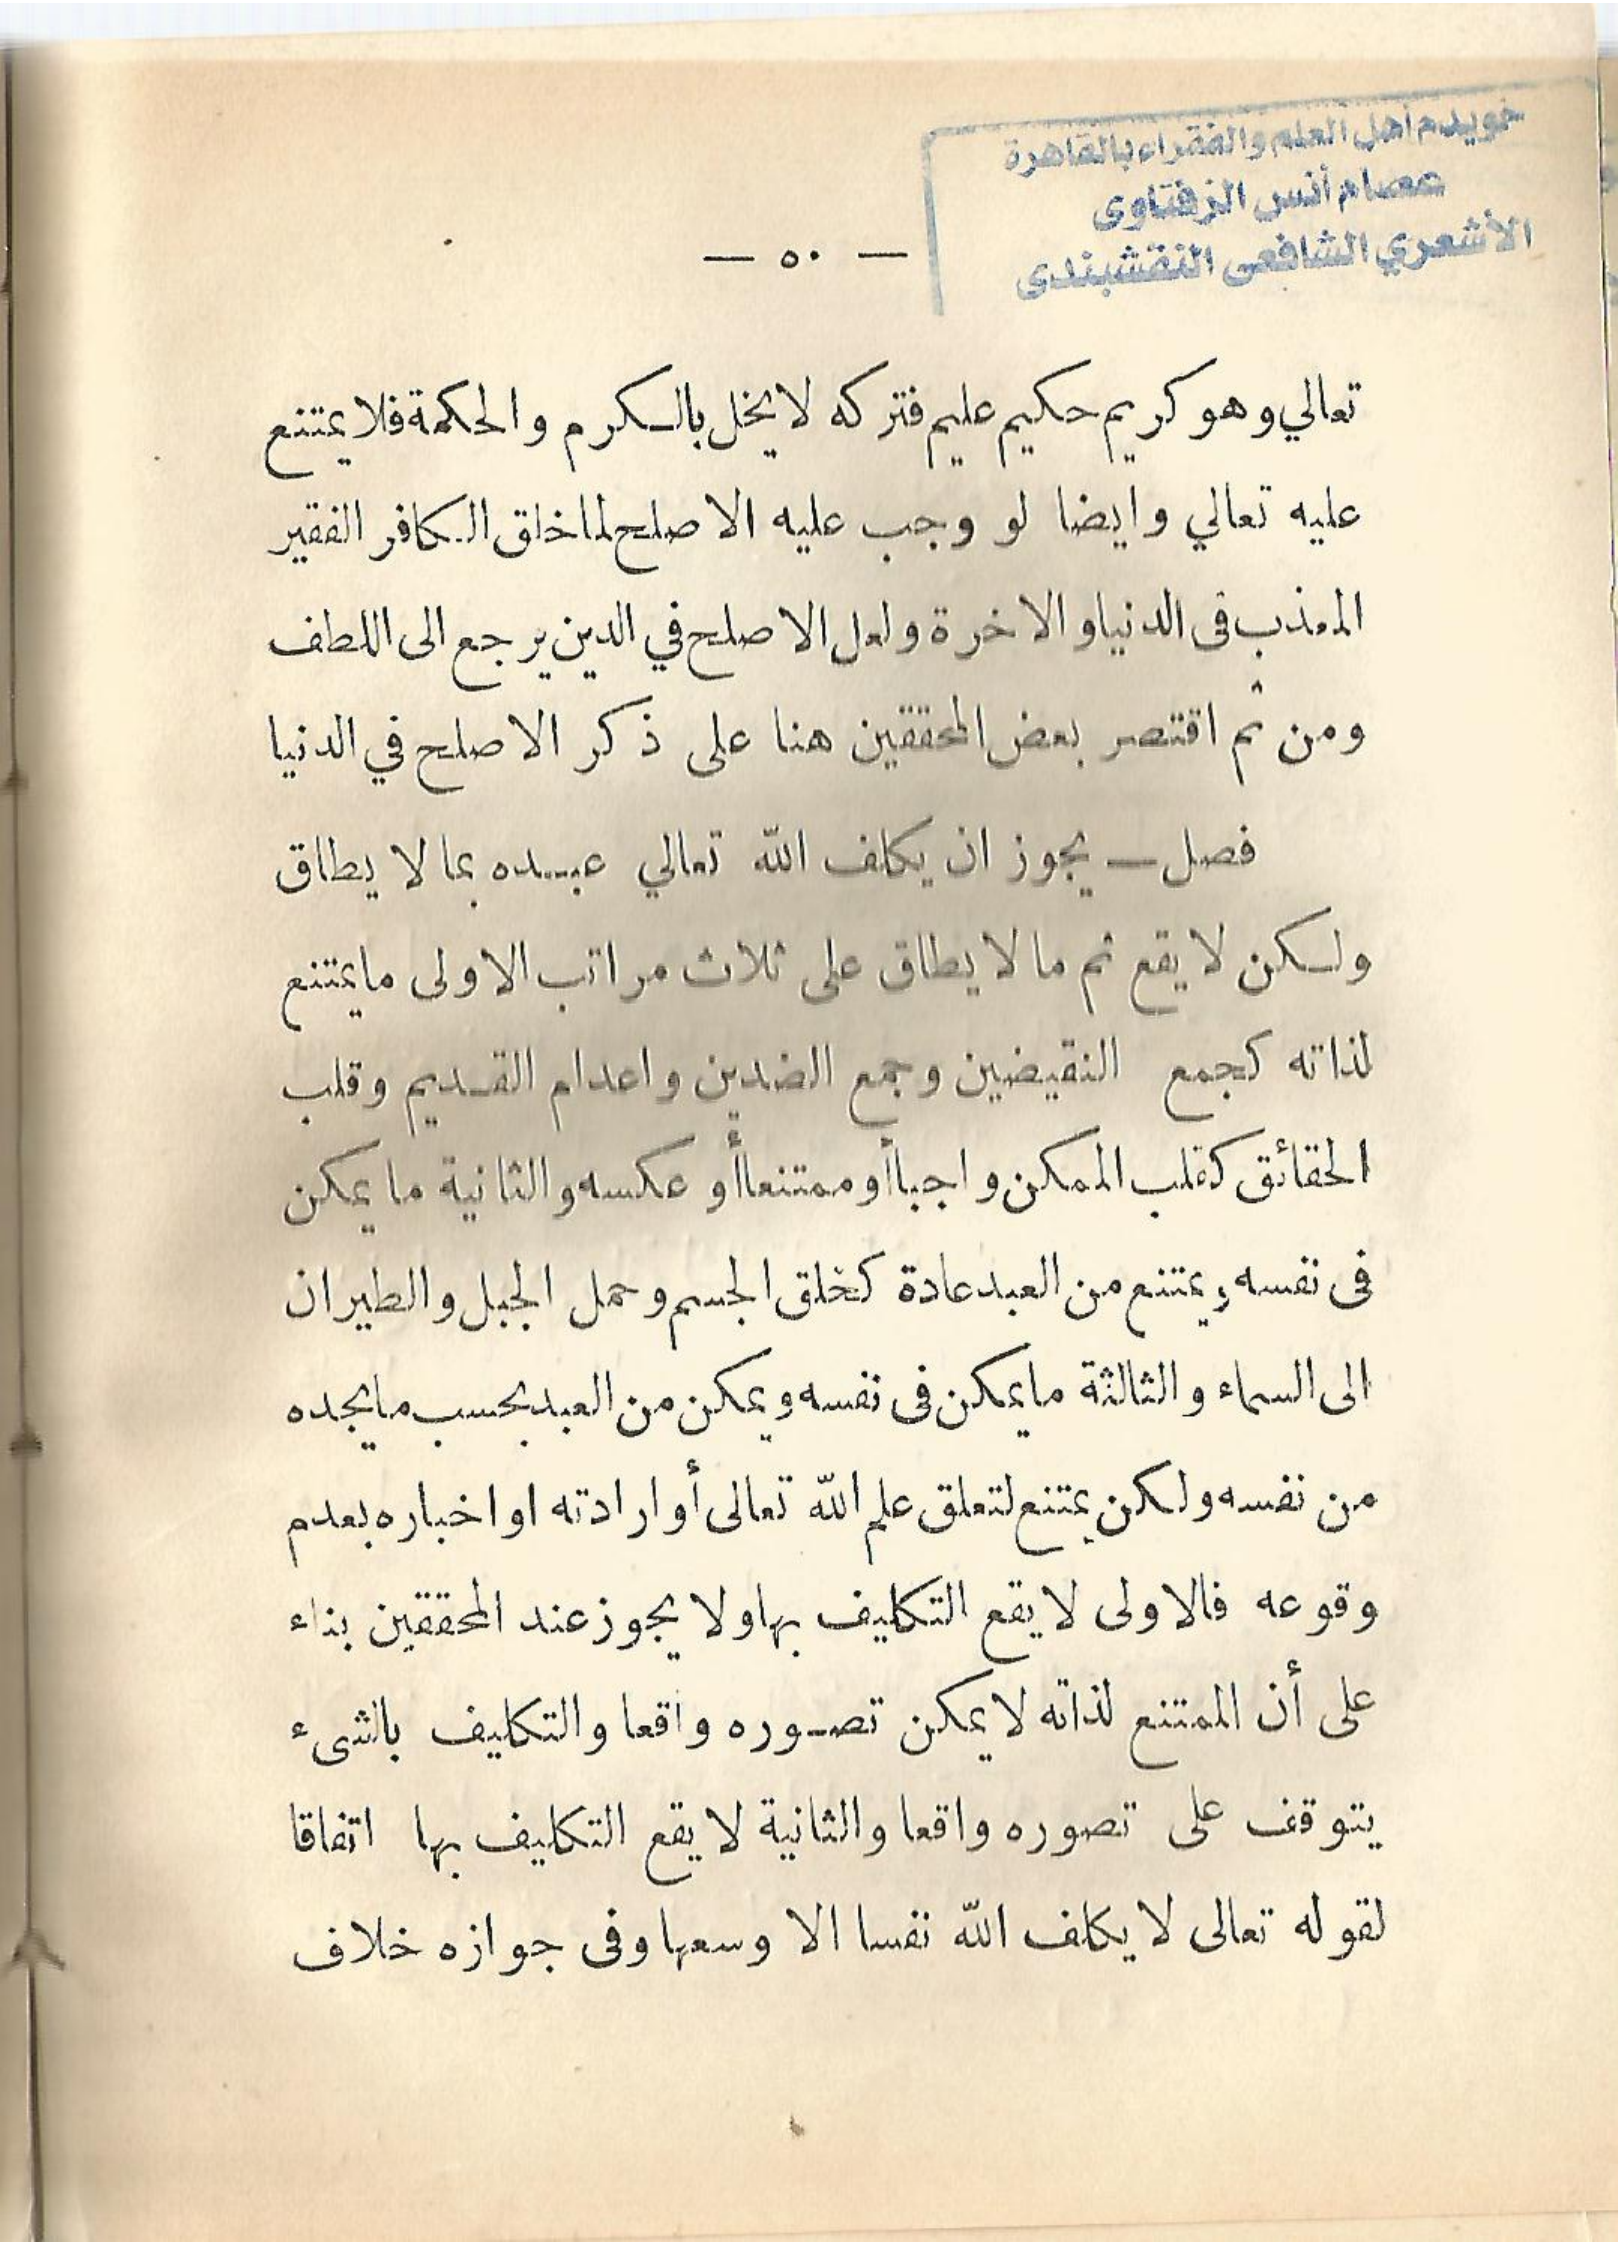 خويدم أهل العلم والفقراء بالقاهرة
عصام أنس الزفتاوى
الأشعري الشافعى النقشبندى
— ٥٠ —
تعالي وهو كريم حكيم عليم فتركه لا يخل بالكرم والحكمة فلا يمتنع
عليه تعالي وايضا لو وجب عليه الاصلح لما خلق الكافر الفقير
المعذب فى الدنيا والاخرة ولعل الاصلح في الدين يرجع الى اللطف
ومن ثم اقتصر بعض المحققين هنا على ذكر الاصلح في الدنيا
فصل — يجوز ان يكلف الله تعالي عبده بما لا يطاق
ولكن لا يقع ثم ما لا يطاق على ثلاث مراتب الاولى ما يمتنع
لذاته كجمع النقيضين وجمع الضدين واعدام القديم وقلب
الحقائق كقلب الممكن واجباً أو ممتنعاً أو عكسه والثانية ما يمكن
فى نفسه ويمتنع من العبد عادة كخلق الجسم وحمل الجبل والطيران
الى السماء والثالثة ما يمكن فى نفسه ويمكن من العبد بحسب ما يجده
من نفسه ولكن يمتنع لتعلق علم الله تعالى أو ارادته او اخباره بعدم
وقوعه فالاولى لا يقع التكليف بها ولا يجوز عند المحققين بناء
على أن الممتنع لذاته لا يمكن تصوره واقعا والتكليف بالشىء
يتوقف على تصوره واقعا والثانية لا يقع التكليف بها اتفاقا
لقوله تعالى لا يكلف الله نفسا الا وسعها وفى جوازه خلاف